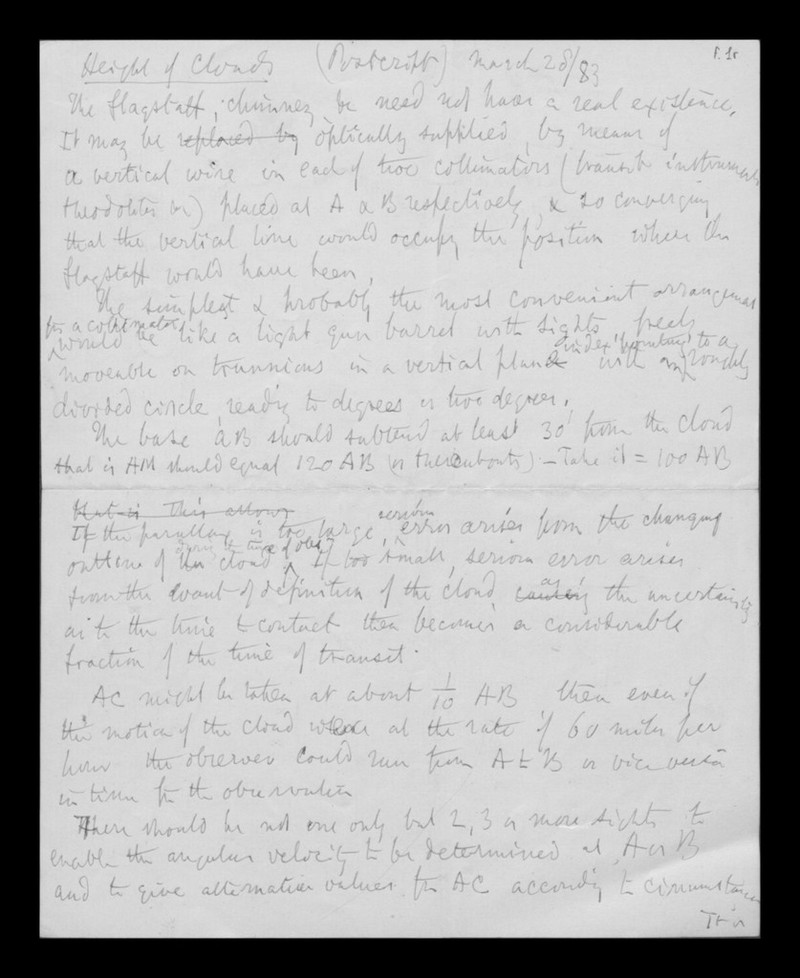 Height of Clouds (Postcript) March 28/83
P. 1r
The flagstaff, chimney, &c need not have a real existence.
It may be replaced by optically supplied, by means of
a vertical wire in each of two collimators (transit instruments
theodolites &c) placed at A & B respectively, & so converging
that the vertical line would occupy the position where the
flagstaff would have been.
The simplest & probably the most convenient arrangement
for a collimator
would be like a light gun barrel with sights freely
index pointing to a
moveable on trunnions in a vertical plane with roughly
divided circle, reading to degrees or two degrees.
The base AB should subtend at least 30' from the cloud
that is AM should equal 120 AB (or thereabouts) – Take it = 100 AB
that is This allows
serious
If the parallax is too large, error arises from the changing
during the time of obs
outline of the cloud. If too small, serious error arises
from the want of definition of the cloud causing as the uncertainty
as to the time of contact then becomes a considerable
fraction of the time of transit.
AC might be taken at about 1/10 AB, then even if
the motion of the cloud were at the rate of 60 miles per
hour the observer could run from A to B or vice versa
in time for the observation
There should be not one only but 2, 3 or more sights to
enable the angular velocity to be determined at A or B
and to give alternative values for AC according to circumstances
It is